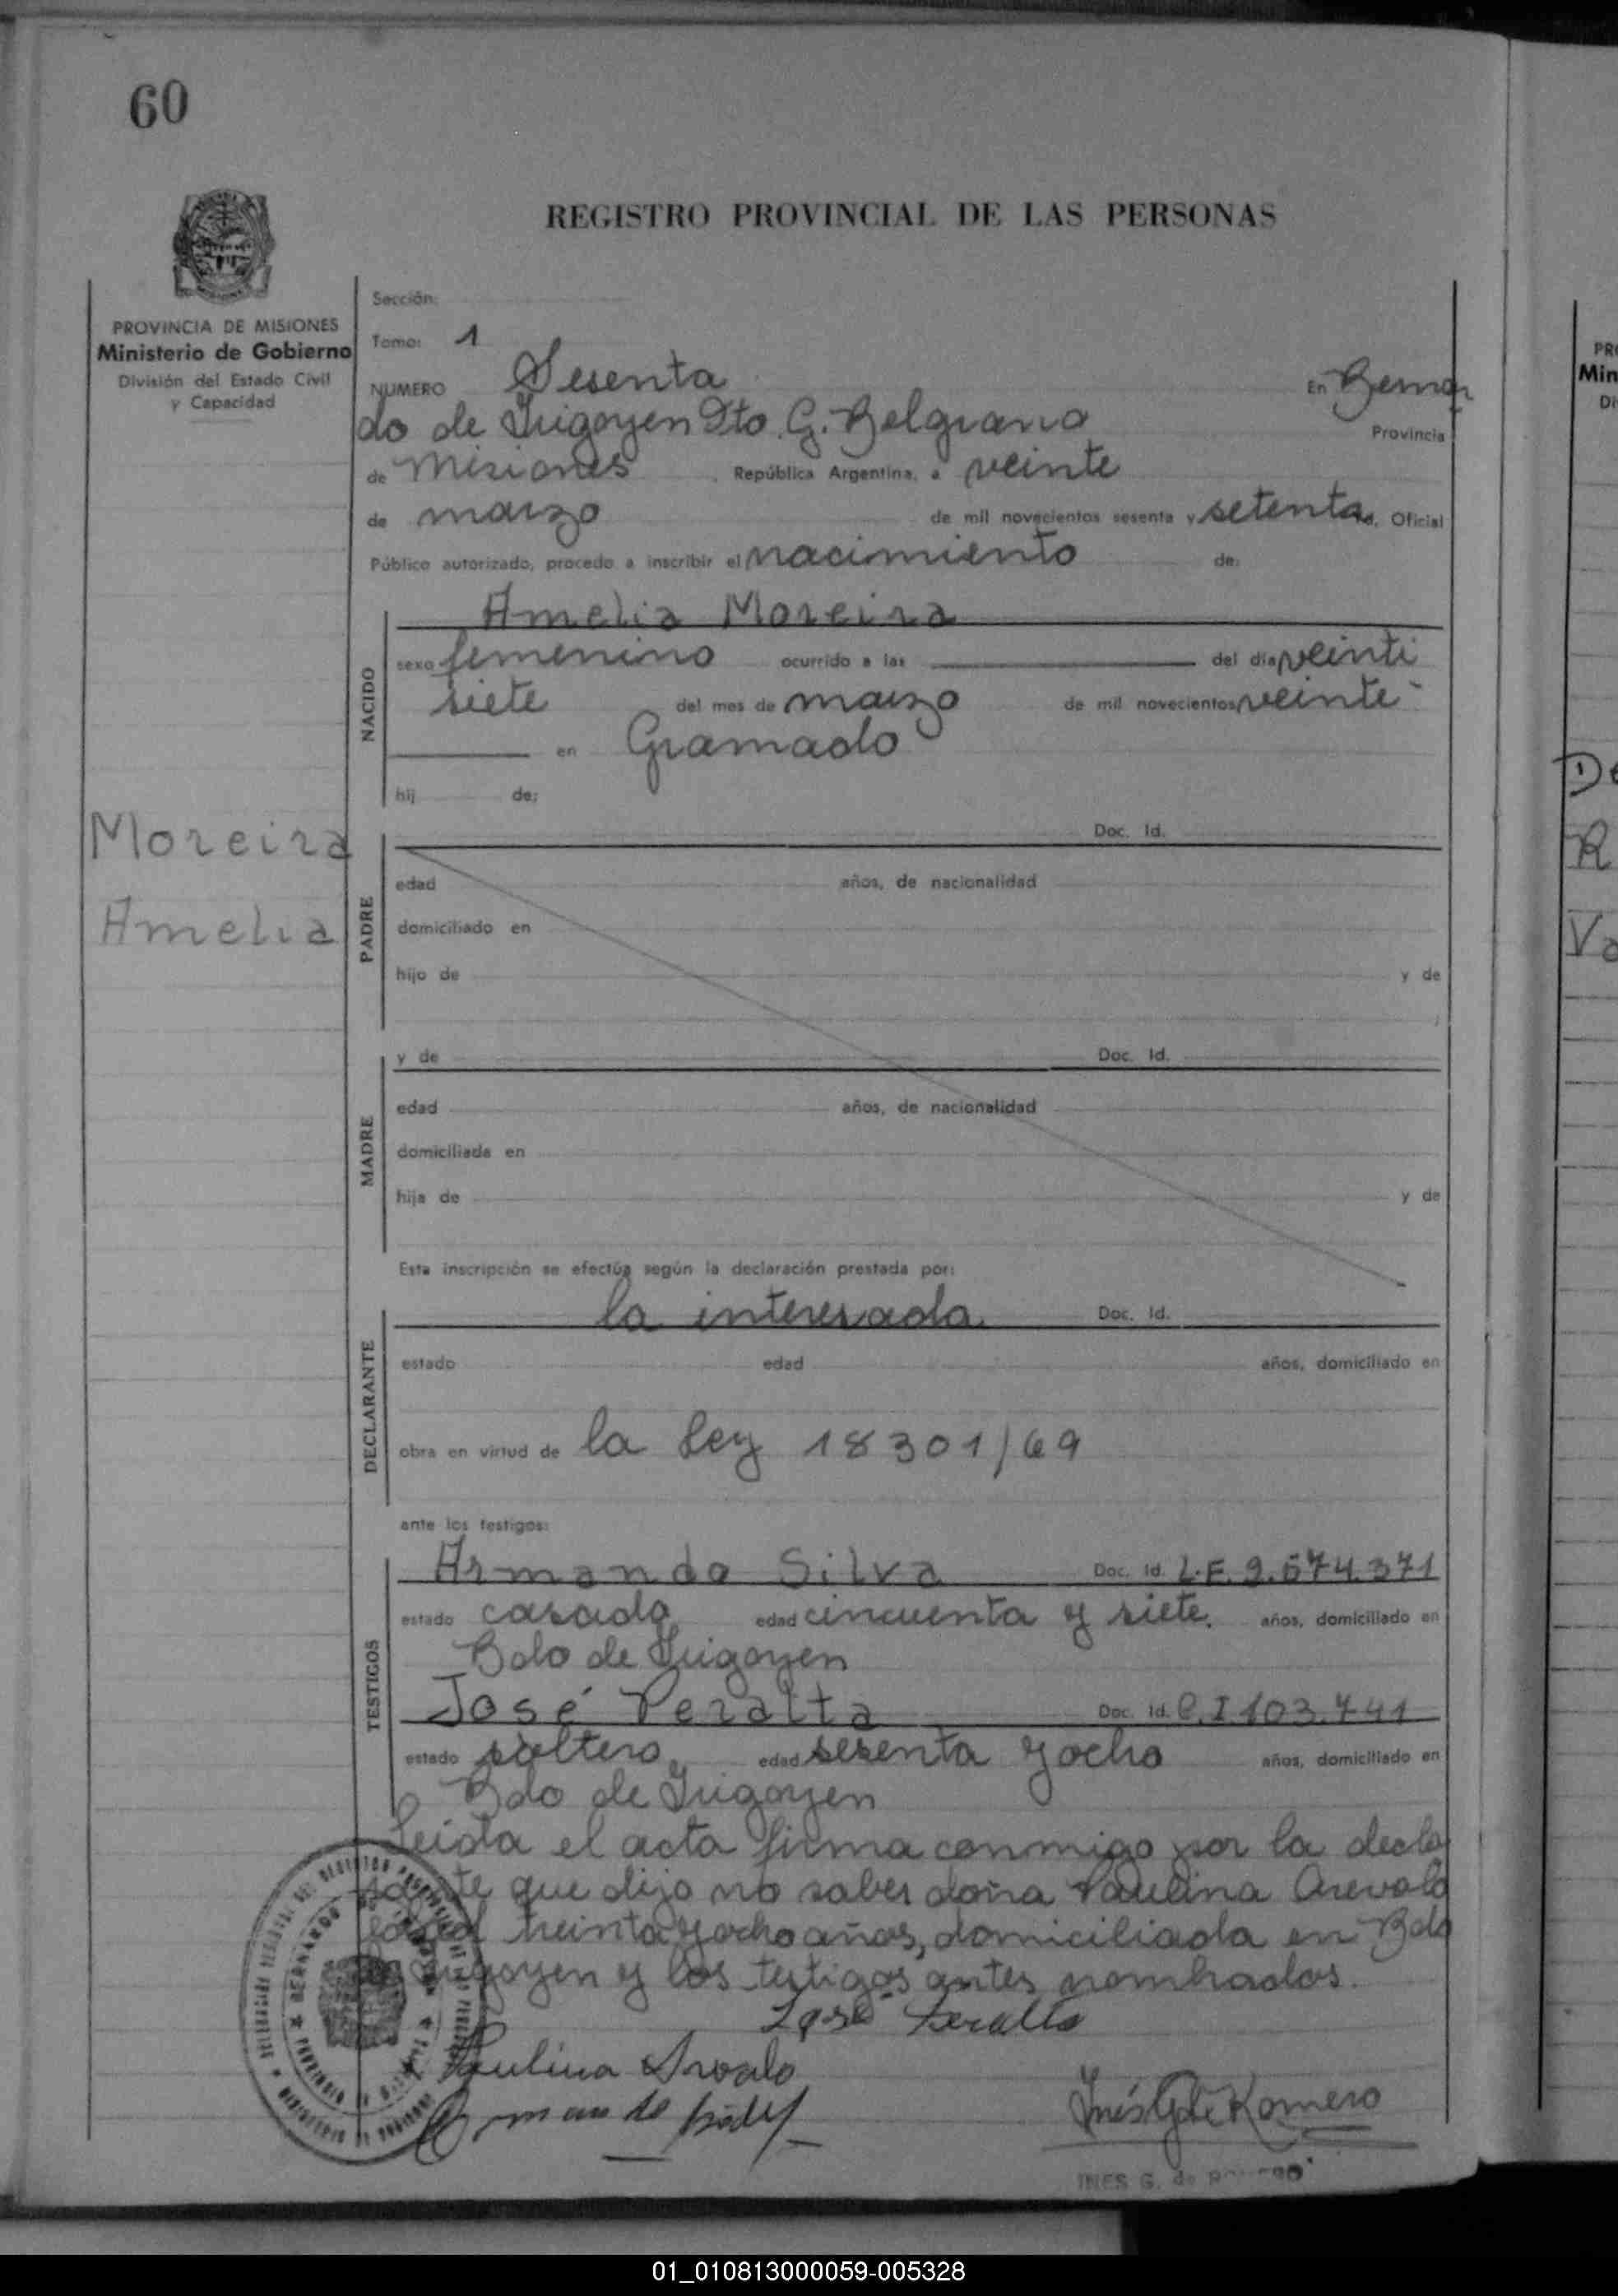 60
REGISTRO PROVINCIAL DE LAS PERSONAS
PROVINCIA DE MISIONES
Ministerio de Gobierno
División del Estado Civil
y Capacidad
Sección:
Tomo: 1
NUMERO Sesenta En Bernar
do de Irigoyen Dto. G. Belgrano Provincia
de Misiones, República Argentina, a veinte
de marzo de mil novecientos sesenta y setenta, Oficial
Público autorizado, procedo a inscribir el nacimiento de:
Amelia Moreira
NACIDO
sexo femenino ocurrido a las del día veinti
siete del mes de marzo de mil novecientos veinte
en Gramado
hij de:
Moreira
Amelia
PADRE
Doc. Id.
edad años, de nacionalidad
domiciliado en
hijo de y de
MADRE
y de Doc. Id.
edad años, de nacionalidad
domiciliada en
hija de y de
Esta inscripción se efectúa según la declaración prestada por:
DECLARANTE
la interesada Doc. Id.
estado edad años, domiciliado en
obra en virtud de la Ley 18301/69
ante los testigos:
TESTIGOS
Armando Silva Doc. Id. L.E. 9.574.371
estado casado edad cincuenta y siete. años, domiciliado en
Bdo de Irigoyen
José Peralta Doc. Id. C.I 103.741
estado soltero edad sesenta y ocho años, domiciliado en
Bdo de Irigoyen
Leida el acta firma conmigo por la decla
rante que dijo no saber doña Paulina Arevalo
edad treinta y ocho años, domiciliada en Bdo
Irigoyen y los testigos antes nombrados.
José Peralta
Paulina Arvalo
Inés G de Romero
INES G. de ROMERO
PR
Min
Di
De
R
Va
01_010813000059-005328